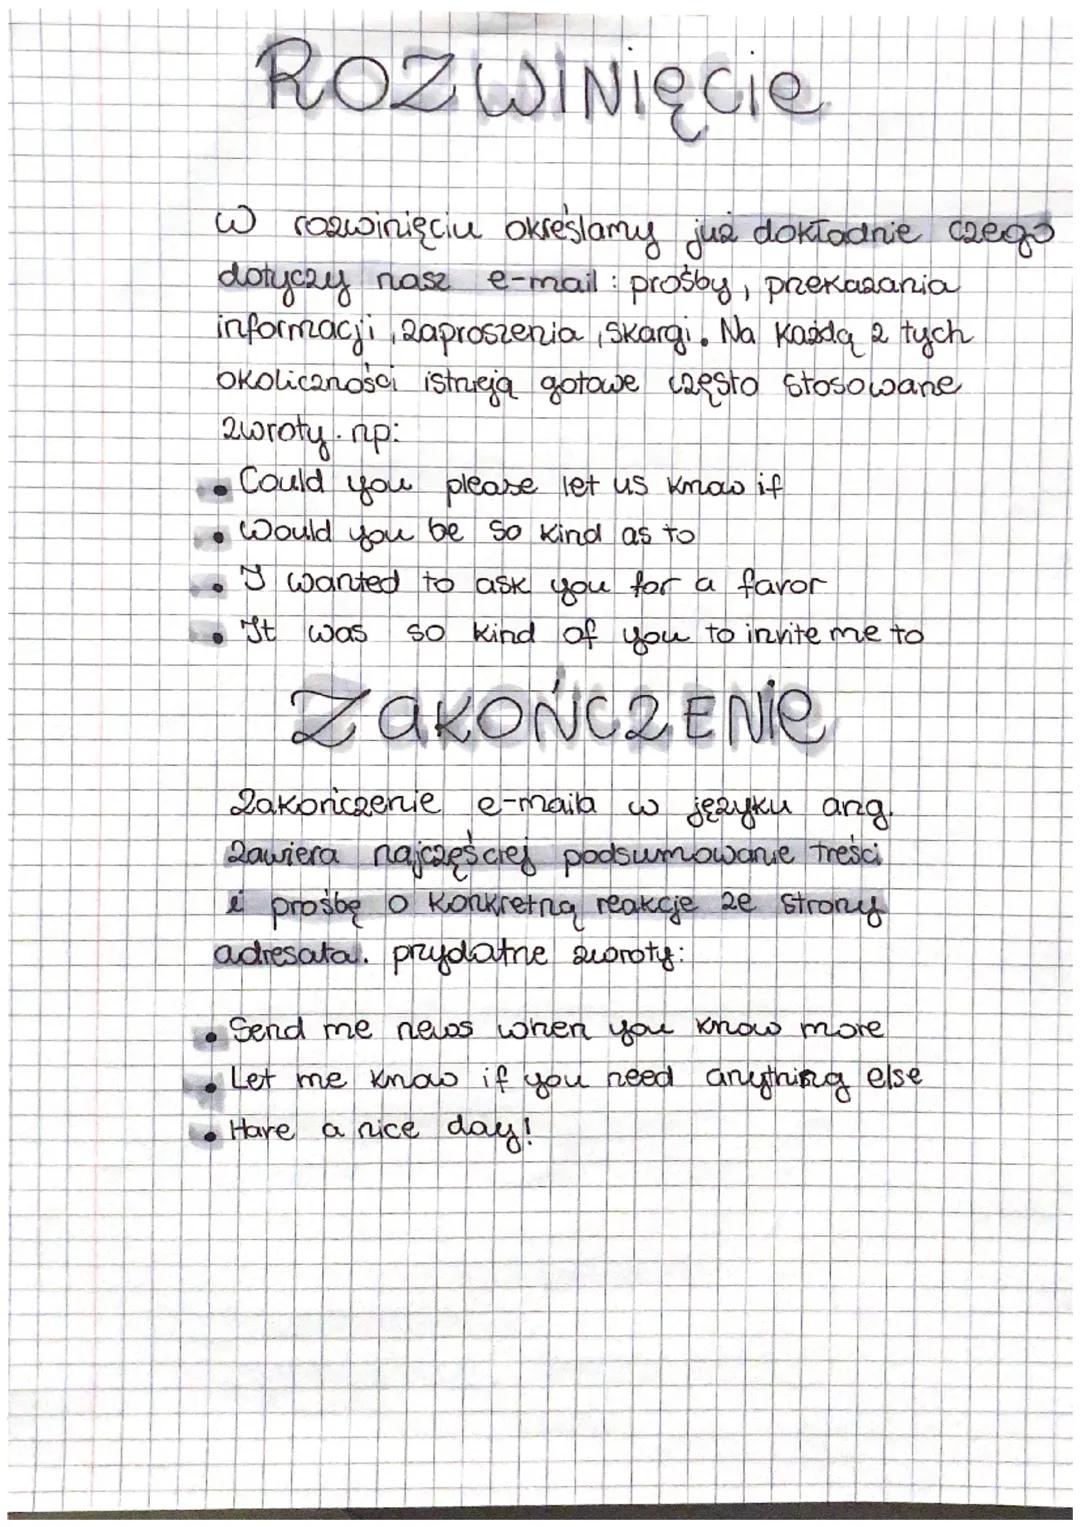 ROZWINIęCie
W rozwinięciu określamy już dokładnie czego
dotyczy nasz e-mail: prośby, przekazania
informacji, zaproszenia, skargi. Na każdą z tych
okoliczności istnieją gotowe często stosowane
zwroty. np:
• Could you please let us know if
• Would you be so kind as to
• I wanted to ask you for a favor
• It was so kind of you to invite me to
ZaKOŃCZENie
Zakończenie e-maila w języku ang.
zawiera najczęściej podsumowanie treści
i prośbę o konkretną reakcje ze strony
adresata. przydatne zwroty:
• Send me news when you know more
• Let me know if you need anything else
• Have a nice day!